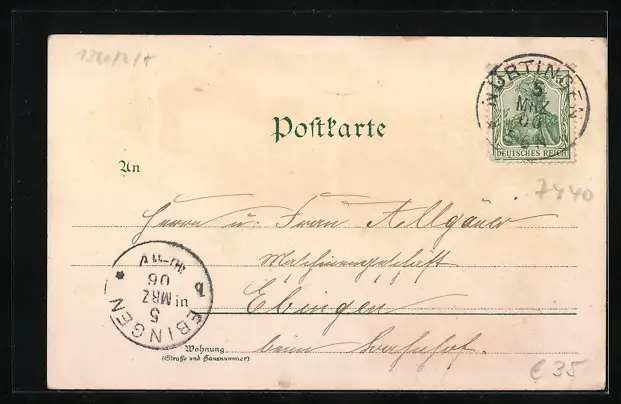 1380/2/T
NÜRTINGEN
5
MRZ
06
DEUTSCHES REICH
Postkarte
An
7440
Herrn u. Frau Allgäuer
Maschinengeschäft
EBINGEN
5
MRZ
06
in Ebingen
Wohnung beim Bahnhof.
(Straße und Hausnummer)
€ 35